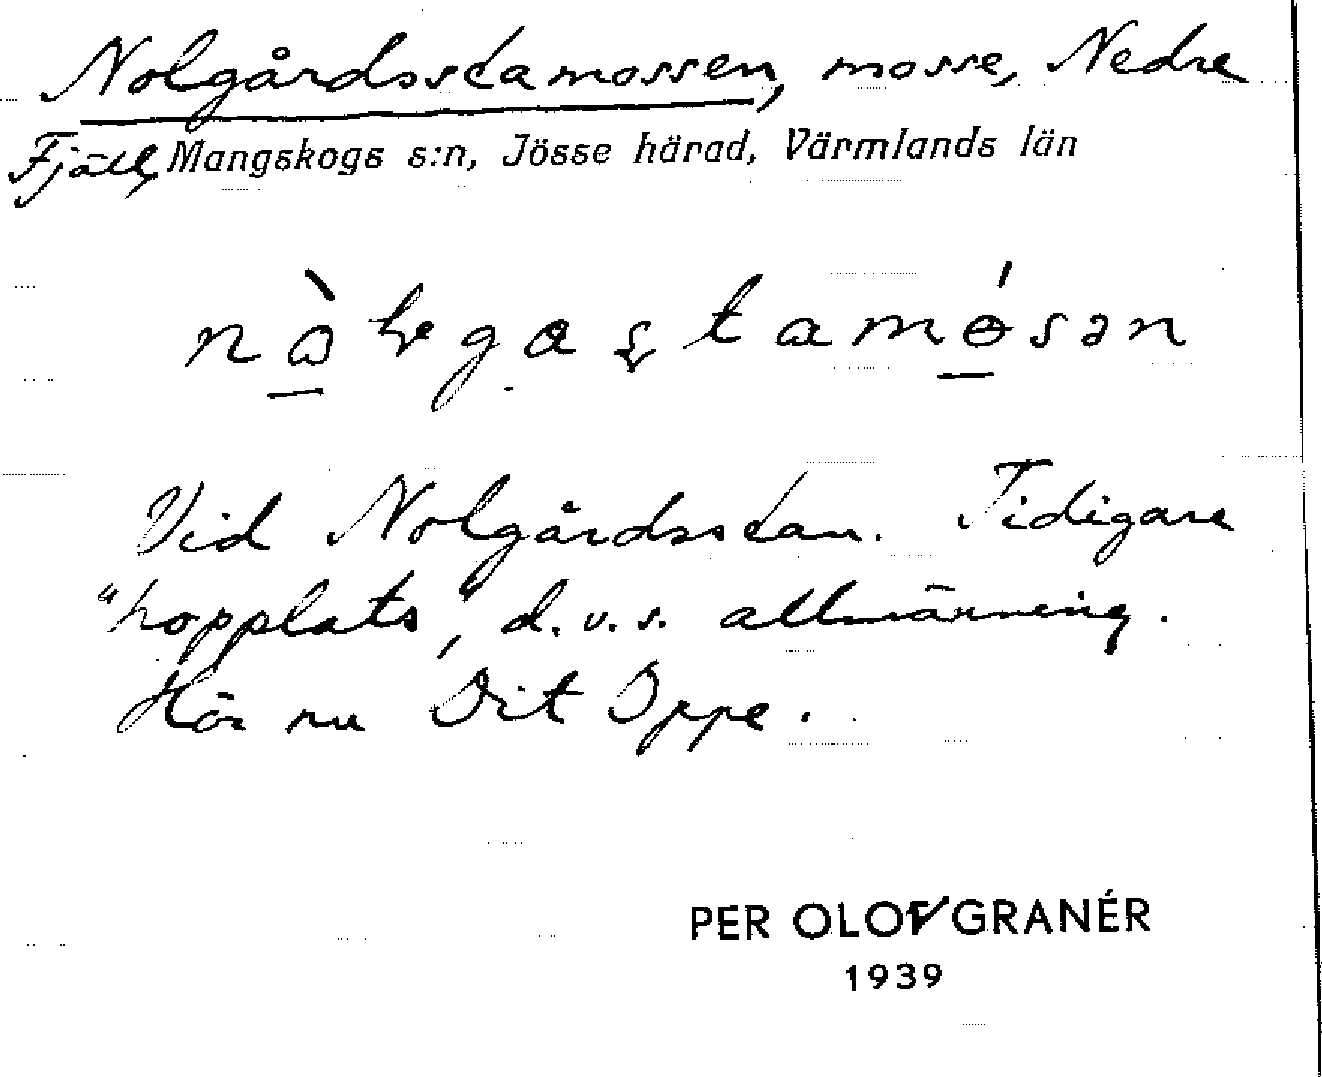 Nolgårdsstamossen, mosse, Nedre
Fjäll, Mangskogs s:n, Jösse härad, Värmlands län
Vid Nolgårdsstan. Tidigare
"hopplats", d.v.s. allmänning.
Här nu Dit Oppe.
PER OLOF GRANÉR
1939